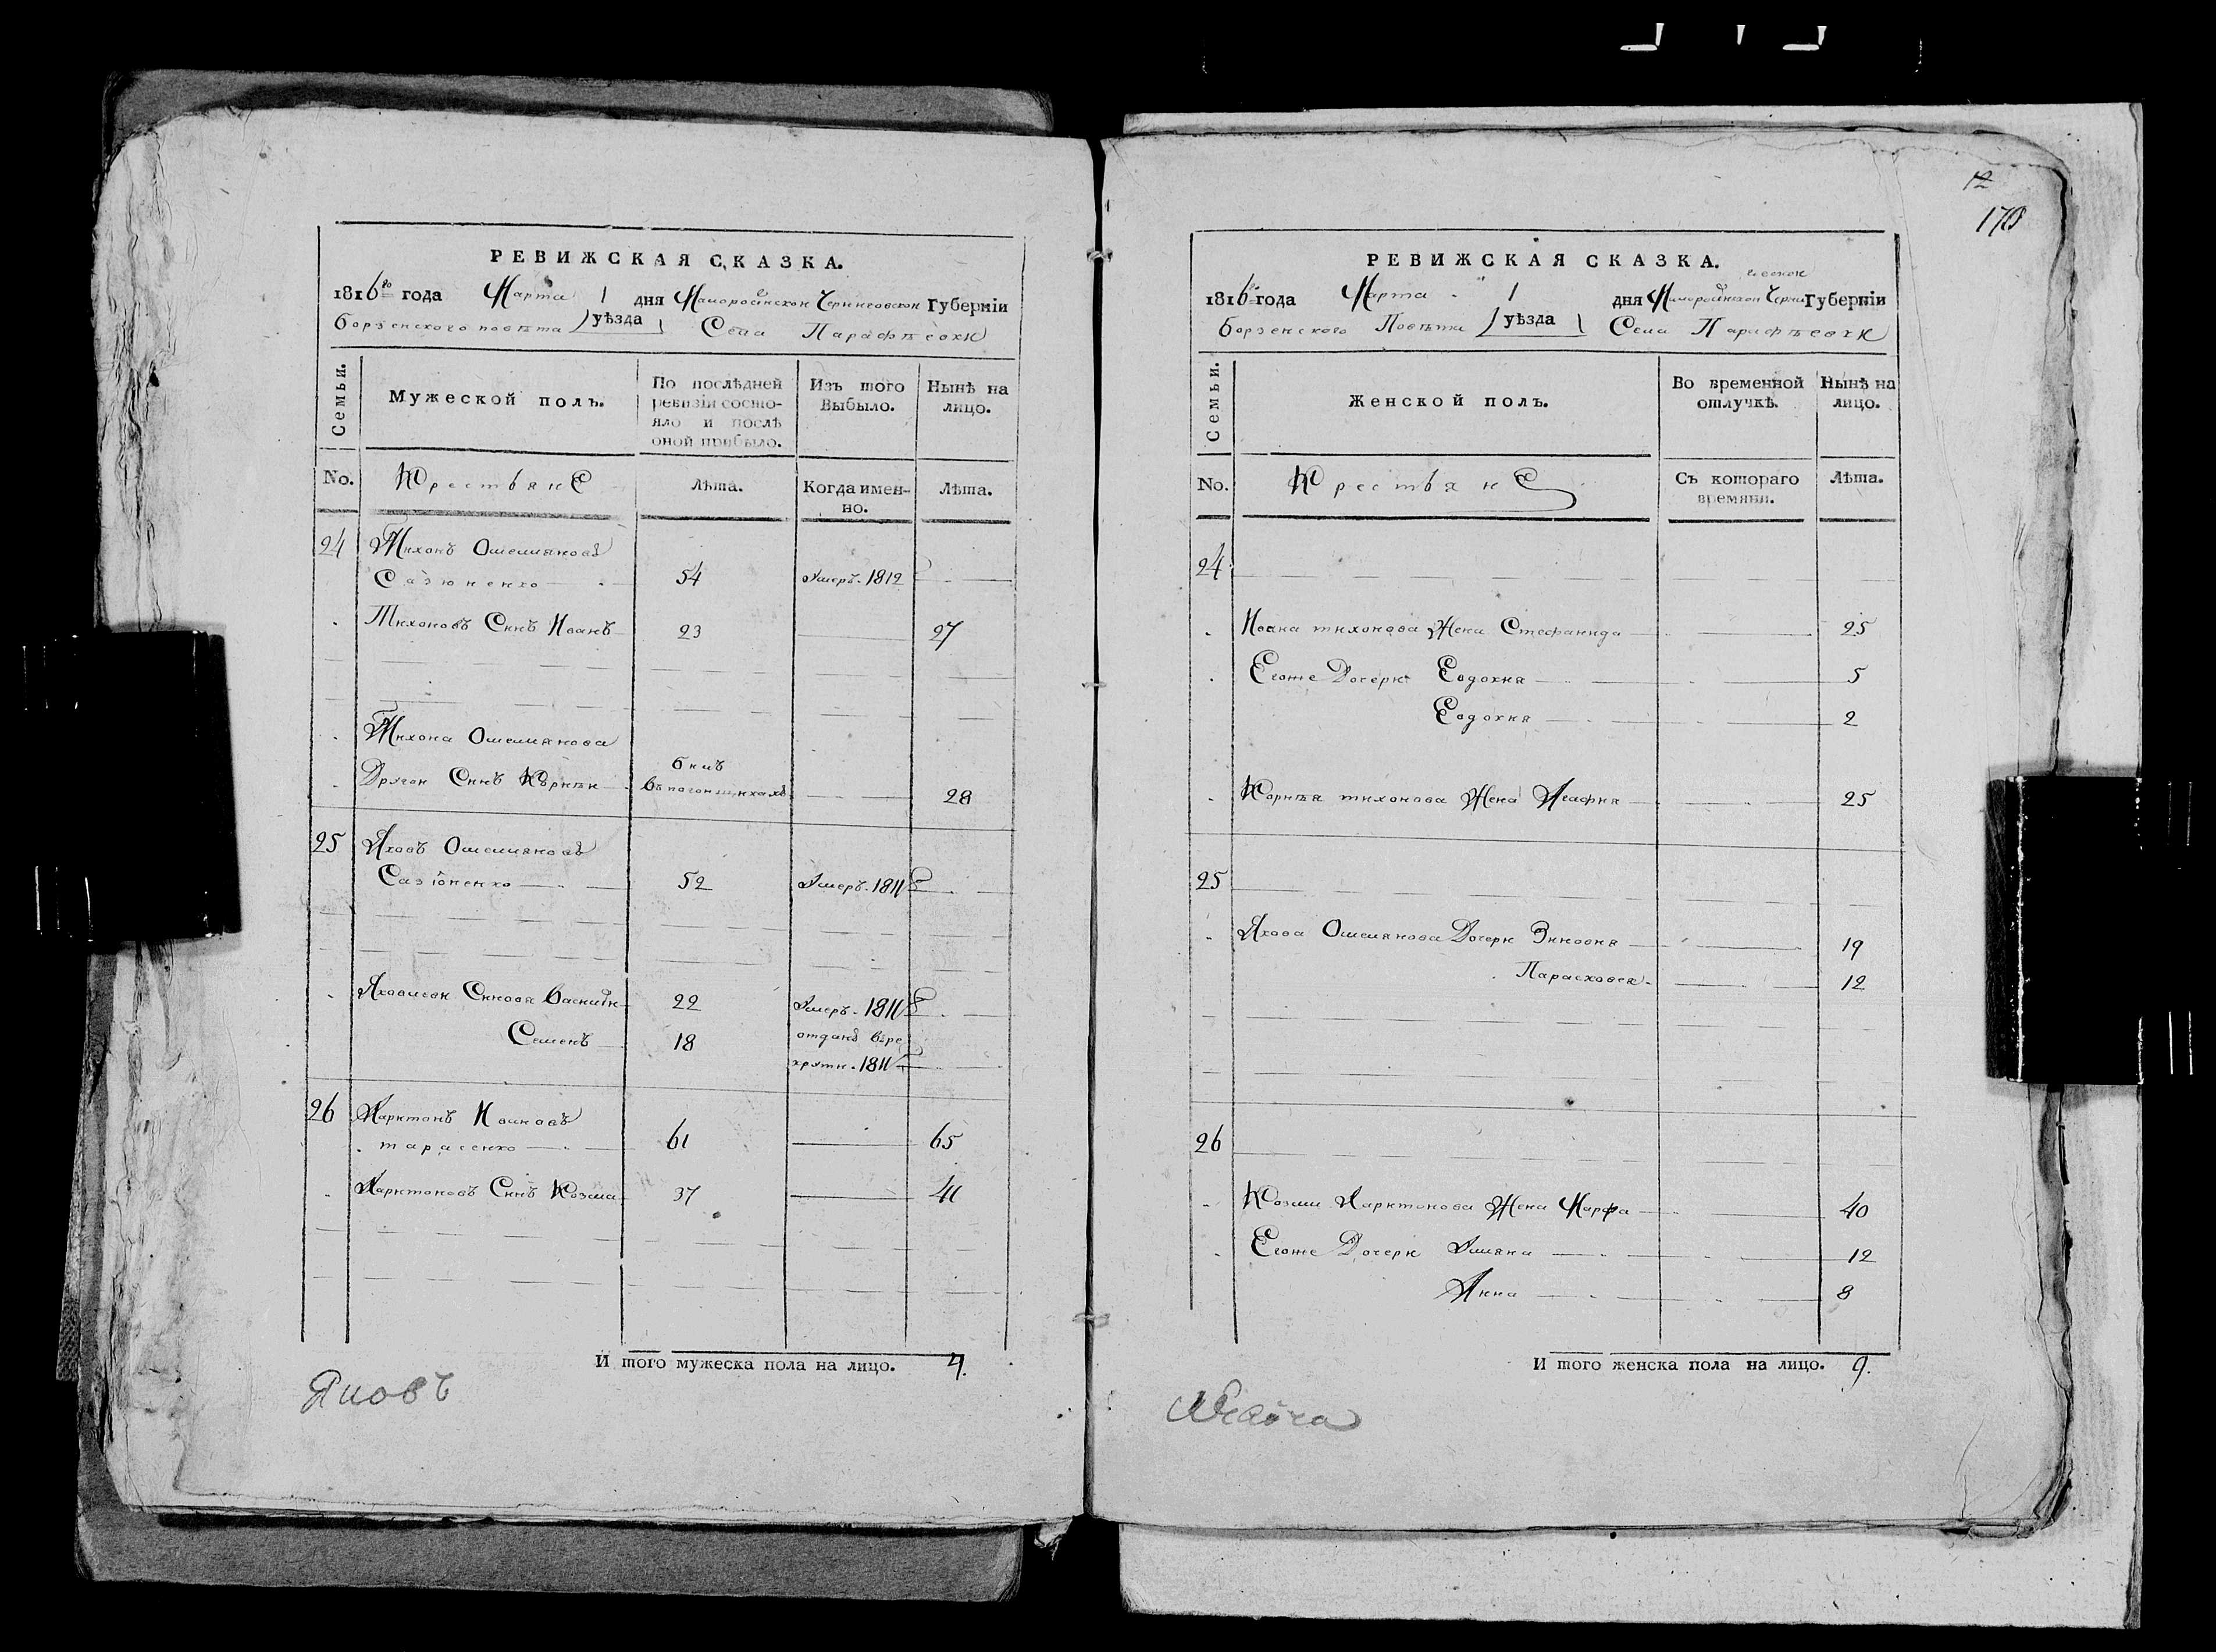 РЕВИЖСКАЯ СКАЗКА.
1816го года Марта 1 дня Малоросійской Черниговской Губерніи
Борзенского повѣта уѣзда Села Парафѣевки
Семьи.
Мужеской полъ.
По послѣдней ревизіи состояло и послѣ оной прибыло.
Изъ того выбыло.
Нынѣ на лицо.
No.
Крестьяне
Лѣта.
Когда именно.
Лѣта.
24 Тихонъ Омеляновъ
Сазоненко 54 Умеръ. 1812
Тихоновъ Синъ Иванъ 23 27
Тихона Омелянова
Другой Синъ Корнѣй билъ в погонщикахъ 28
25 Яковъ Омеляновъ
Сазоненко 52 Умеръ. 1811
Яковлеви Синовя Василій 22 Умеръ. 1811
Семенъ 18 отданъ в рекрути. 1811
26 Харитонъ Ивановъ
тарасенко 61 65
Харитоновъ Синъ Козма 37 41
И того мужеска пола на лицо. 4.
12
170
РЕВИЖСКАЯ СКАЗКА.
1816го года Марта 1 дня Малоросійской Черниговской Губерніи
Борзенского Повѣта уѣзда Села Парафѣевки
Семьи.
Женской полъ.
Во временной отлучкѣ.
Нынѣ на лицо.
No.
Крестьяне
Съ котораго времяни.
Лѣта.
24
Ивана тихонова Жена Стефанида 25
Егоже Дочери Евдокия 5
Евдокия 2
Корнѣя тихонова Жена Агафия 25
25
Якова Омелянова Дочери Зиновия 19
Парасковея 12
26
Козми Харитонова Жена Марфа 40
Егоже Дочери Уляна 12
Анна 8
И того женска пола на лицо. 9.